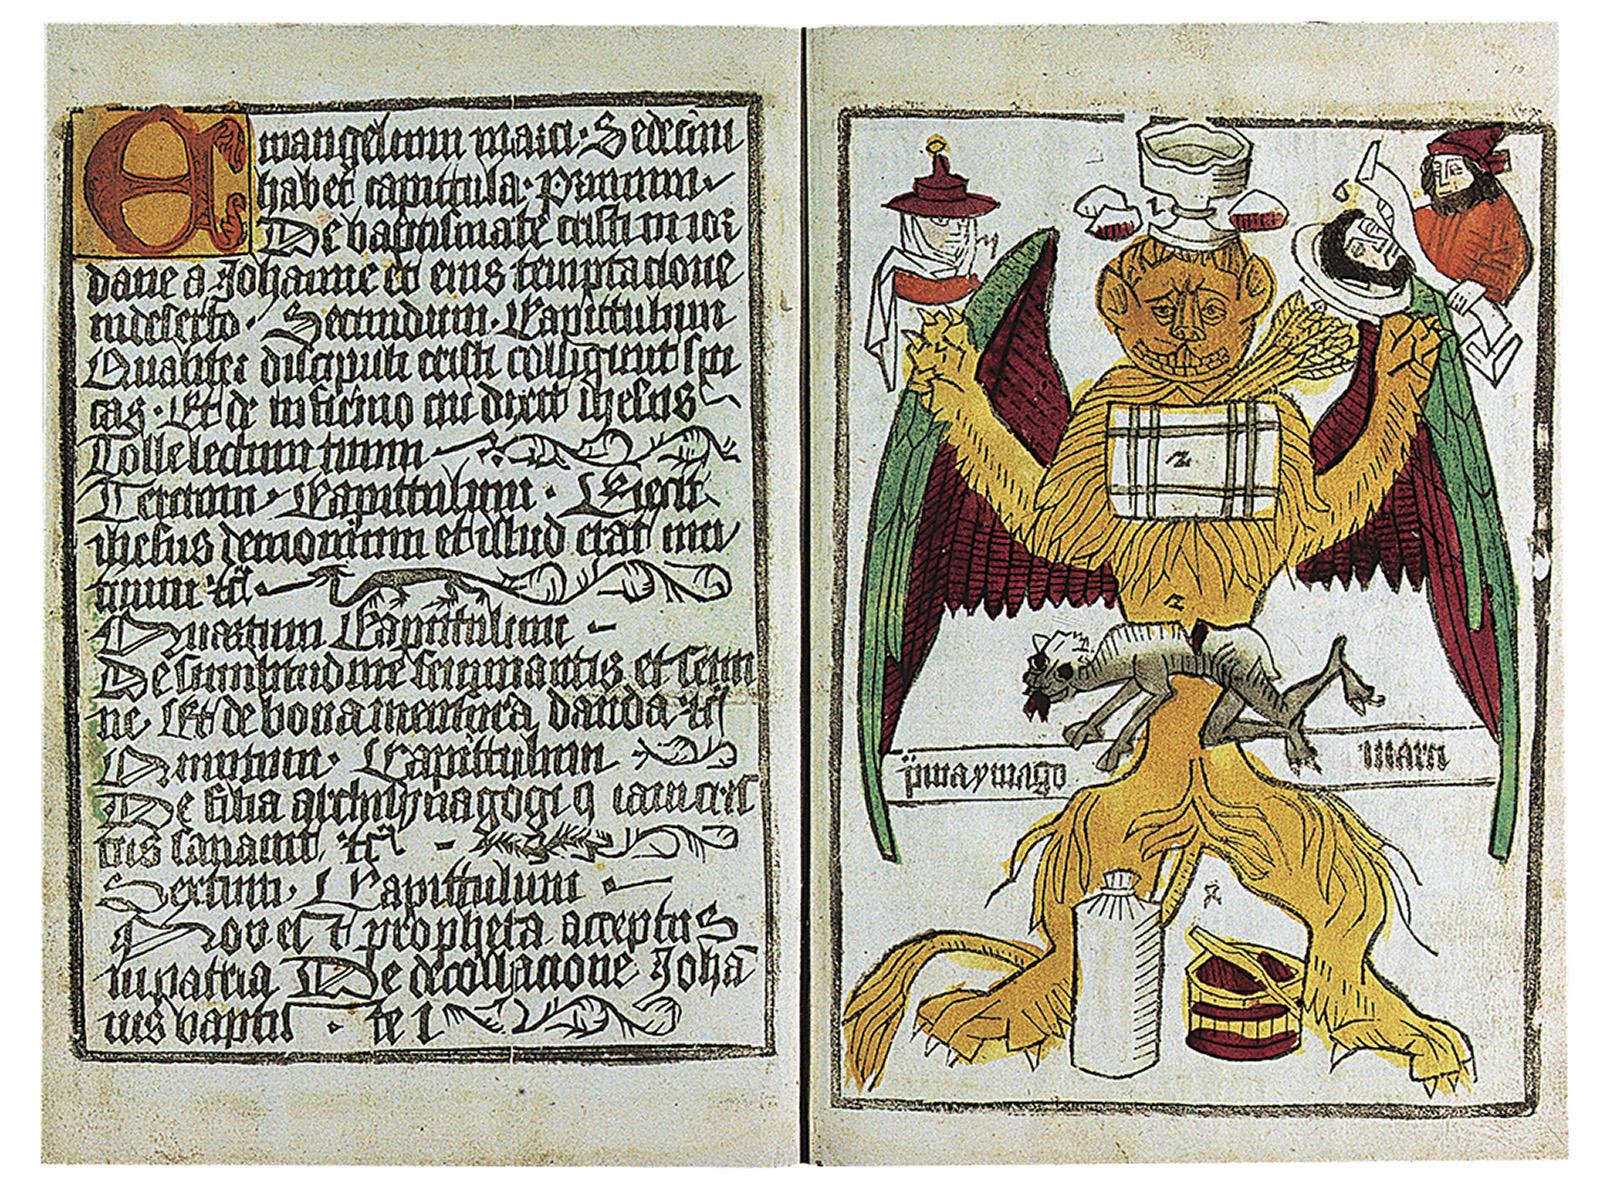 Ewangelium marci · Sedecim
habet capittula · Primum
De baptismate cristi in ior
dane a Johanne et eius temptacione
in deserto · Secundum · Capittulum
Qualiter discipuli cristi colligunt spi
cas · Et de infirmo cui dixit ihesus
Tolle lectum tuum
Tercium · Capittulum · Eiecit
ihesus demonium et illud erat mu
tum
Quartum Capittulum
De similitudine seminantis et semi
ne · Et de bona mensura danda
Quintum · Capittulum
De filia archisynagogi
sanauit
Sextum · Capittulum
propheta acceptus
in patria De decollacione Joha
nis bapti
ymago
marci
2
2
10